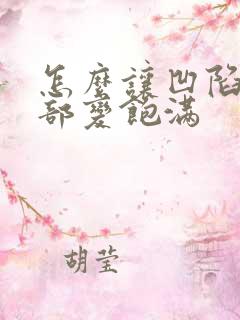 怎麼讓凹陷
部變飽滿
胡莹